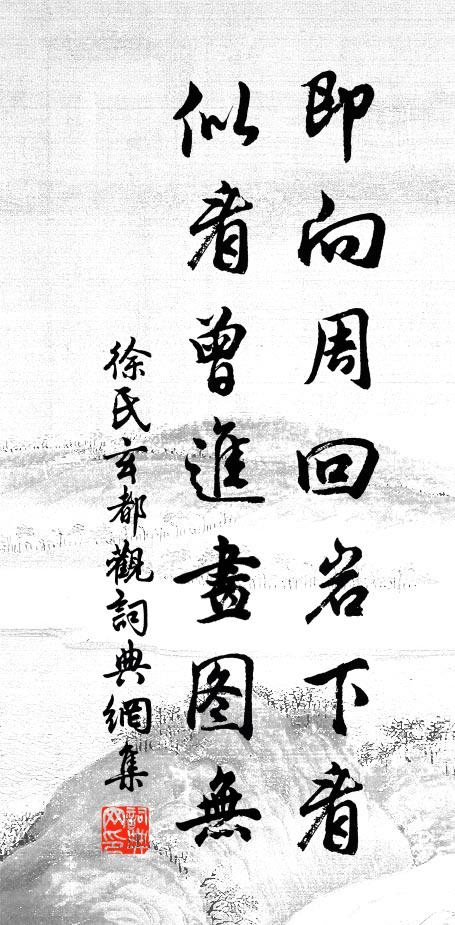 即向周回岩下看
似看曾進畫图無
徐氏玄都觀詞典網集